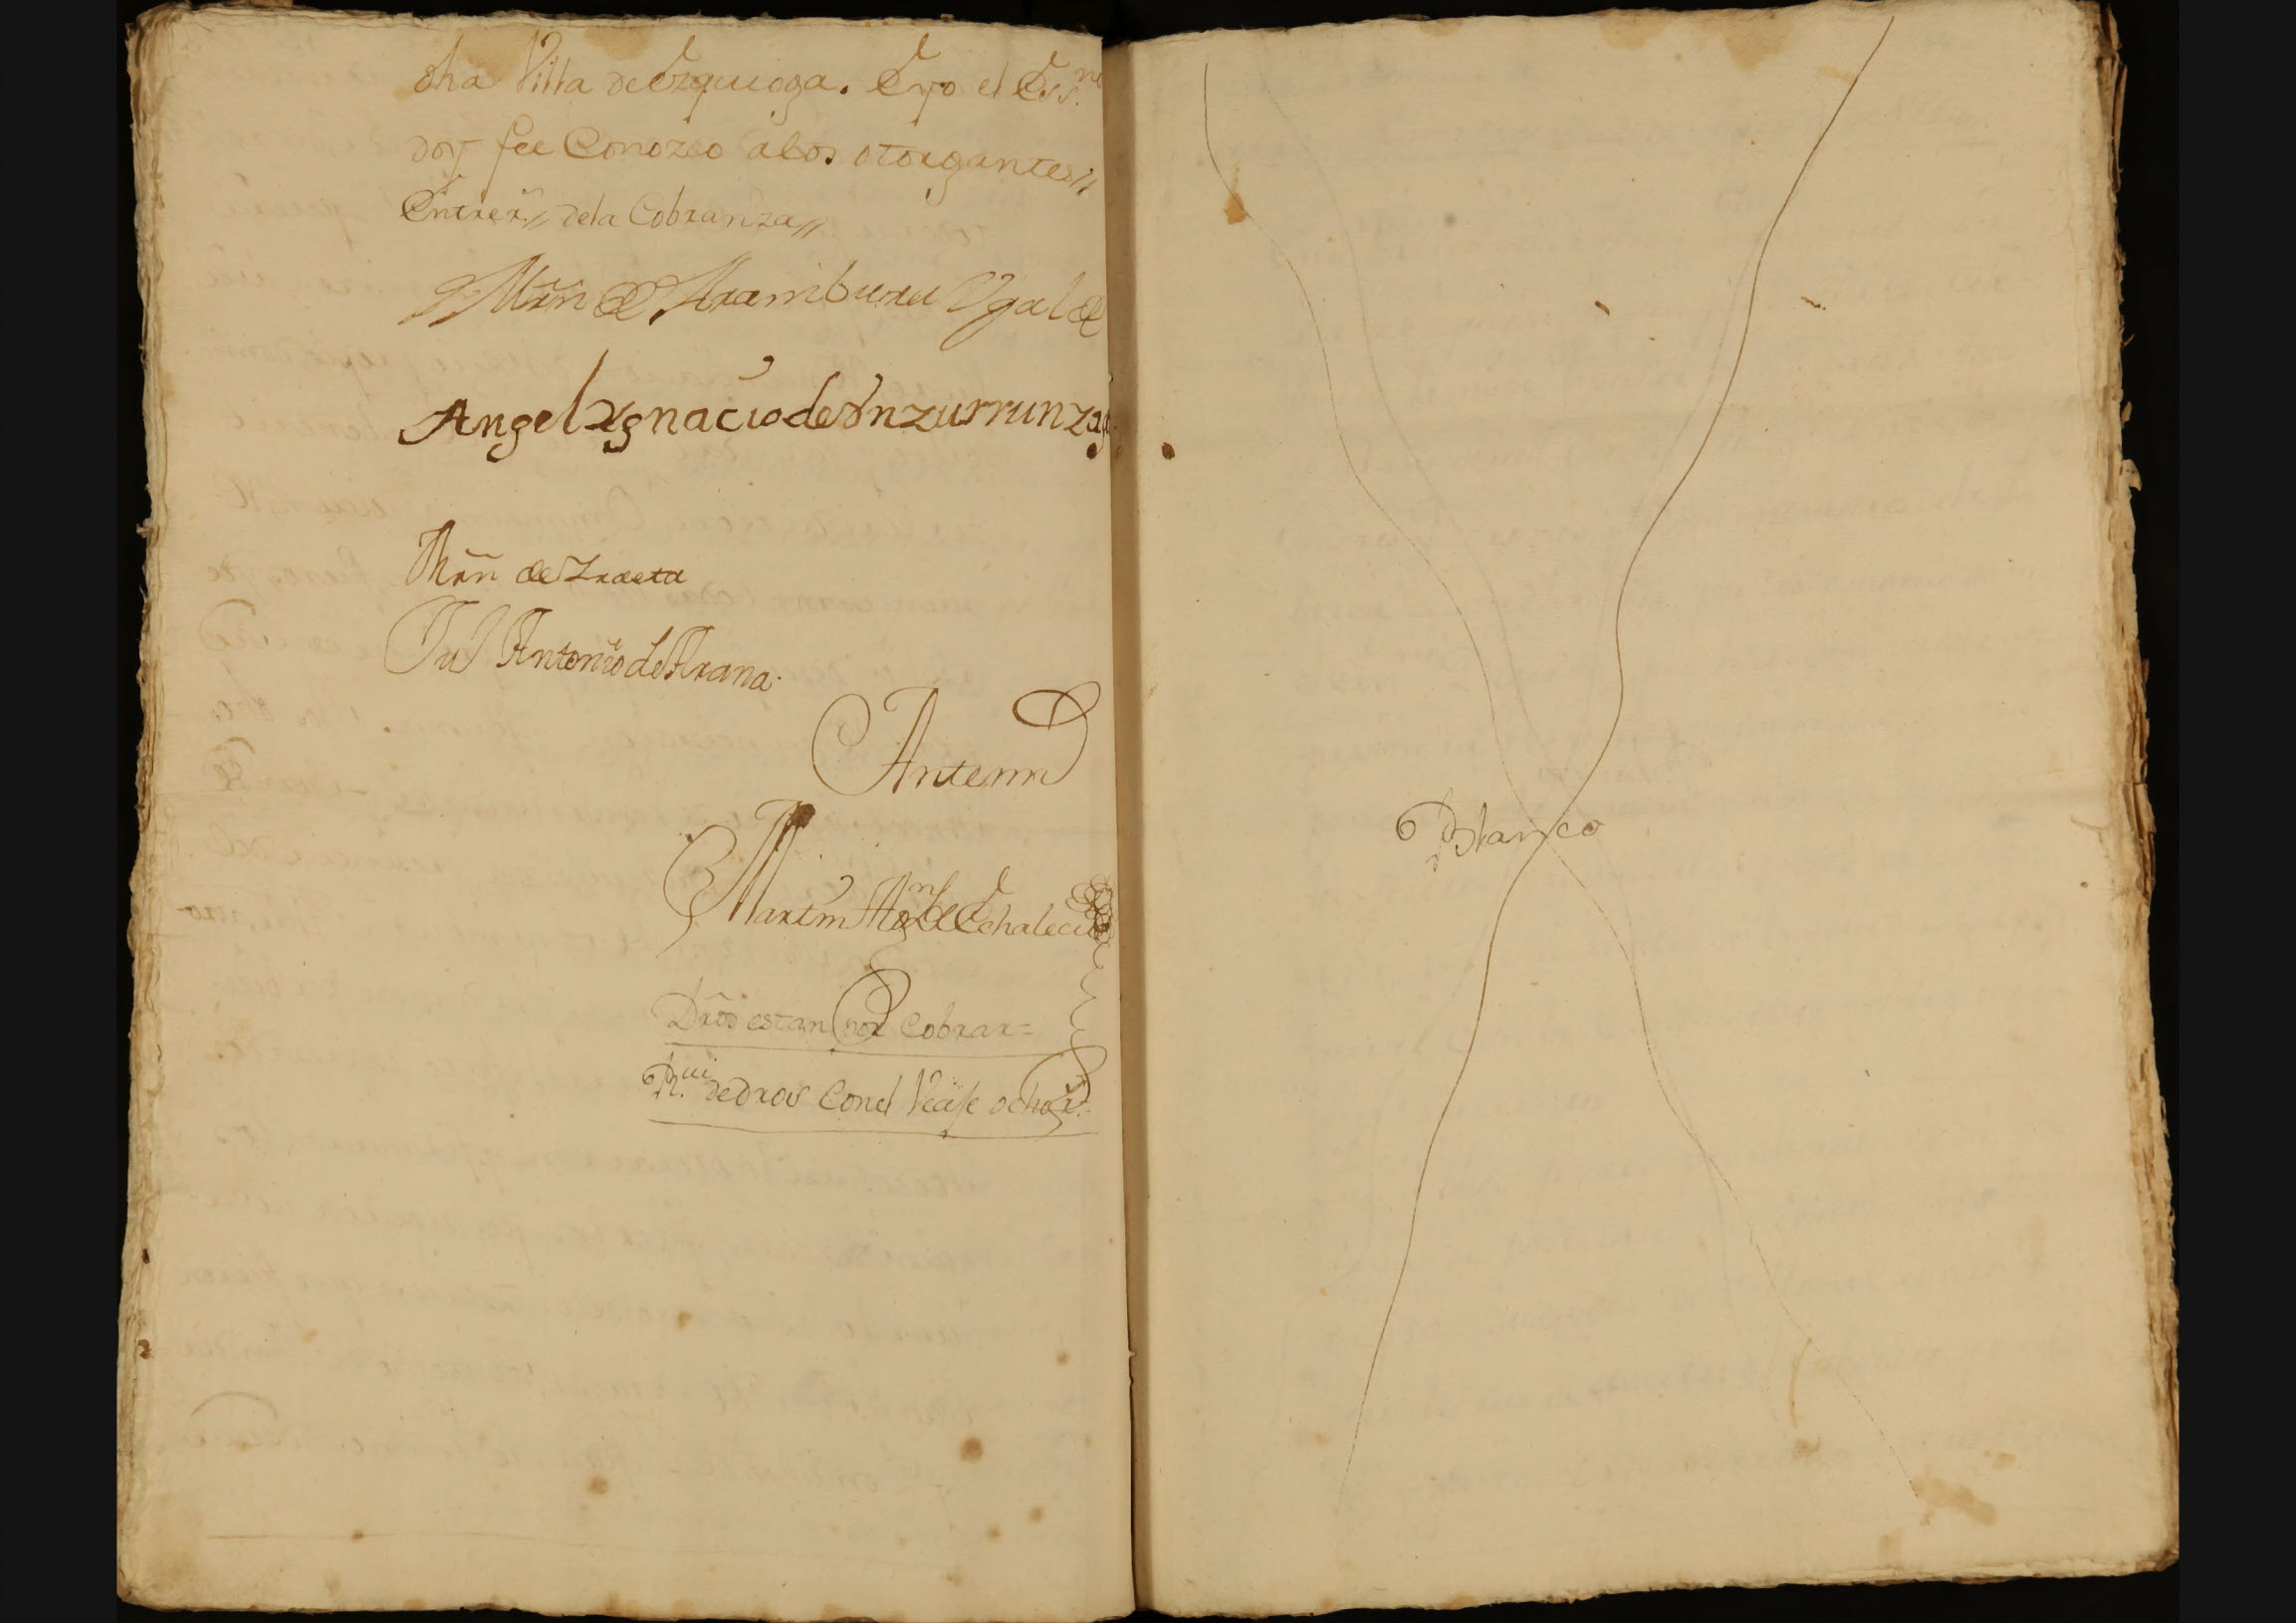 dha Villa de Ezquioga. E yo el Ess.no
doy fee Conozco a los otorgantes//
Entrer.// dela Cobranza//
Mrn de Aramburu Ugalde
Angel Ygnacio de Ynzurrunzaga
Mrn de Zraeta
Ju Antonio de Arana.
Antemi
Martin de Echalecu
Dros estan por Cobrar=
R. de dros Con el
Blanco